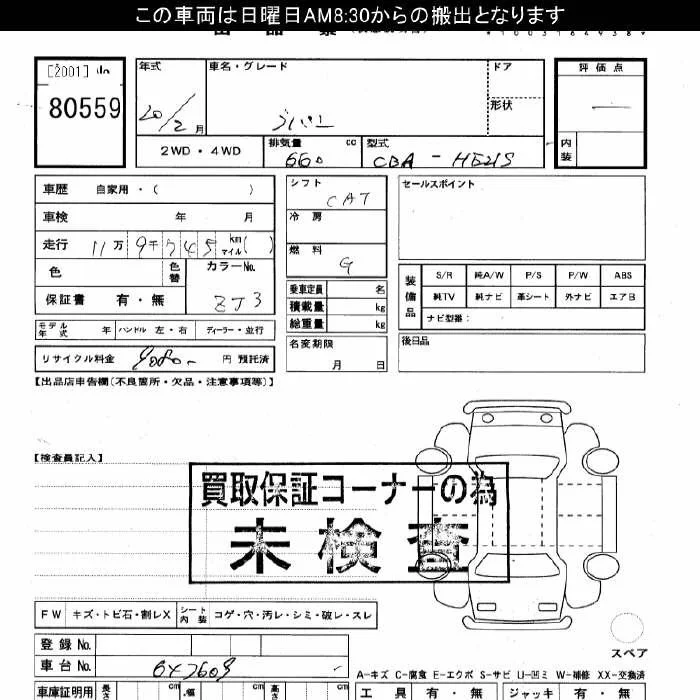 この車両は日曜日AM8:30からの搬出となります
[2001]
80559
年式
20/2月
車名・グレード
ドア
形状
評価点
内装
2WD・4WD
排気量 660 cc
型式 CBA-HE21S
車歴 自家用・( )
車検 年 月
走行 11万 9千 7 4 5 km マイル( )
色
色替
カラーNo. ZJ3
保証書 有・無
モデル年式 年 ハンドル 左・右 ディーラー・並行
リサイクル料金 円 預託済
シフト CAT
冷房
燃料 G
乗車定員 名
積載量 kg
総重量 kg
名変期限
月 日
セールスポイント
装備品
S/R 純A/W P/S P/W ABS
純TV 純ナビ 革シート 外ナビ エアB
ナビ型番:
後日品
【出品店申告欄(不良箇所・欠品・注意事項等)】
【検査員記入】
買取保証コーナーの為
未検査
FW キズ・トビ石・割レX シート内装 コゲ・穴・汚レ・シミ・破レ・スレ
スペア
登録No.
車台No.
A-キズ C-腐食 E-エクボ S-サビ U-凹ミ W-補修 XX-交換済
車庫証明用 長さ cm 幅 cm 高さ cm
工具 有・無 ジャッキ 有・無